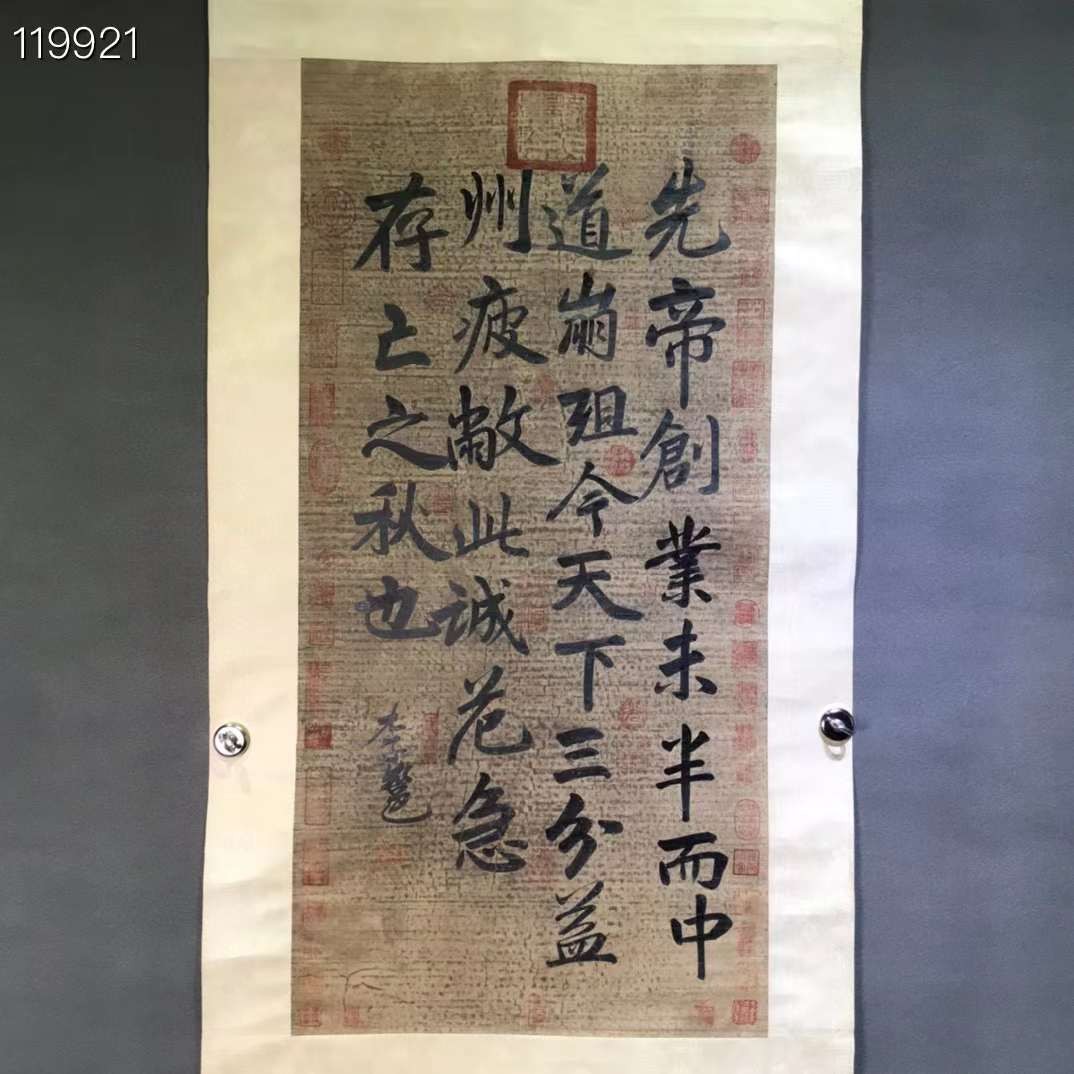 119921
先帝創業未半而中
道崩殂今天下三分益
州疲敝此誠危急
存亡之秋也